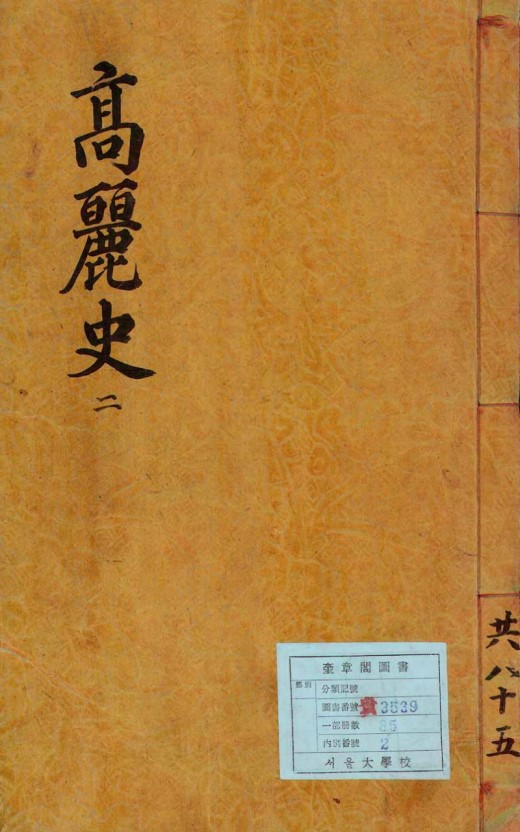 高麗史
二
共八十五
奎章閣圖書
類別
分類記號
圖書番號 貴 3539
一部冊數 85
內別番號 2
서울大學校